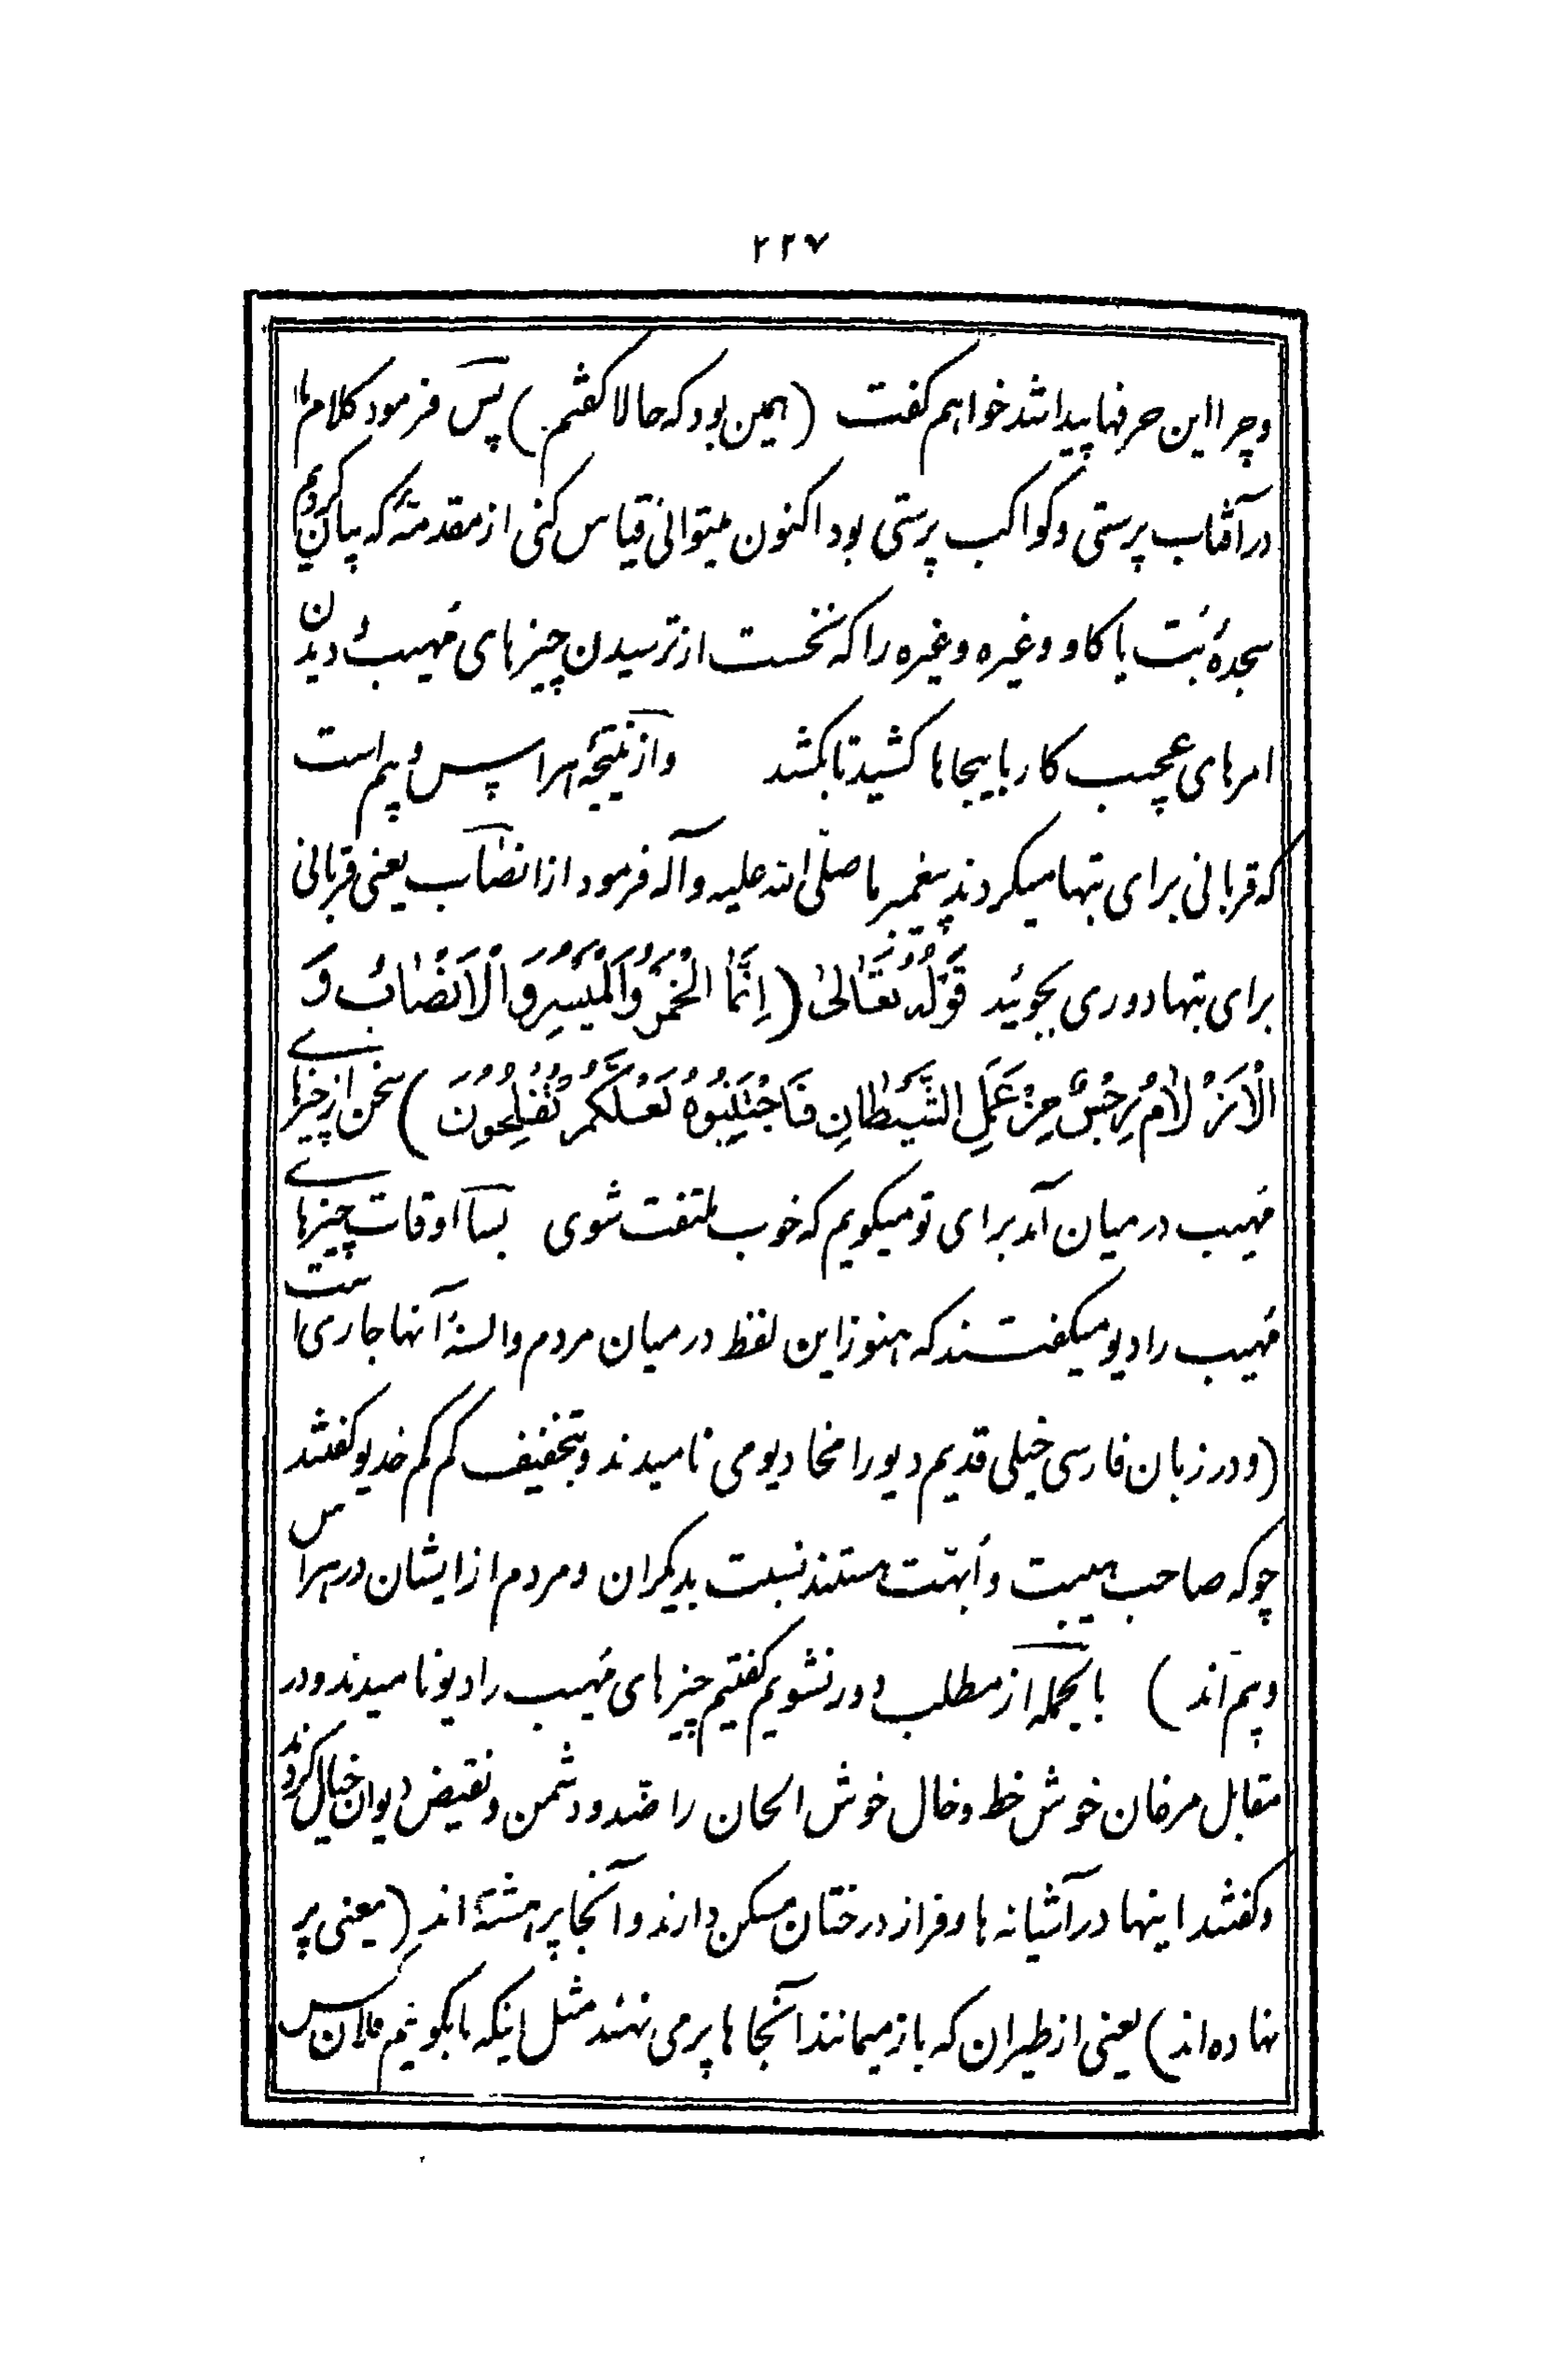 ۲۲۷
وچرا این حرفها پیدا شد خواهم گفت (همین بود که حالا گفتم.) پس فرمود کلام ما
در آفتاب پرستی و کواکب پرستی بود اکنون میتوانی قیاس کنی از مقدمهٔ که بیان کردیم
سجدهٔ بُت یا کاو وغیره وغیره را که نخست از ترسیدن چیزهای مُهیب دیدن
امرهای عجیب کار باینجاها کشید تا بکشد واز نتیجهٔ هراس و بیم است
که قربانی برای بتها میکردند پیغمبر ما صلّی الله علیه وآله فرمود از انصاب یعنی قربانی
برای بتها دوری بجوئید قَوْلُهُ تَعٰالیٰ (اِنَّمَا الْخَمْرُ وَالْمَیْسِرُ وَالْاَنْصٰابُ وَ
الْاَزْلٰامُ رِجْسٌ مِنْ عَمَلِ الشَّیْطٰانِ فَاجْتَنِبُوهُ لَعَلَّکُمْ تُفْلِحُونَ) سخن از چیزهای
مُهیب در میان آمد برای تو میکویم که خوب ملتفت شوی بسا اوقات چیزهای
مُهیب را دیو میکفتند که هنوز این لفظ در میان مردم و السنهٔ آنها جاری است
(ودر زبان فارسی خیلی قدیم دیو را مخادیو می نامیدند وبتخفیف کم کم خدیو کفتند
چوکه صاحب هیبت واُبهّت هستند نسبت بدیکران ومردم از ایشان در هراس
وبیم اند) بالجمله از مطلب دور نشویم کفتیم چیزهای مُهیب را دیو نامیدند ودر
مقابل مرغان خوش خط وخال خوش الحان را ضد ودشمن ونقیض دیوان خیال کردند
وکفتند اینها در آشیانه ها وفراز درختان مسکن دارند وآنجا پر هشته اند (یعنی پر
نهاده اند) یعنی از طیران که باز میمانند آنجاها پر می نهند مثل اینکه ما بکوئیم فلان کس